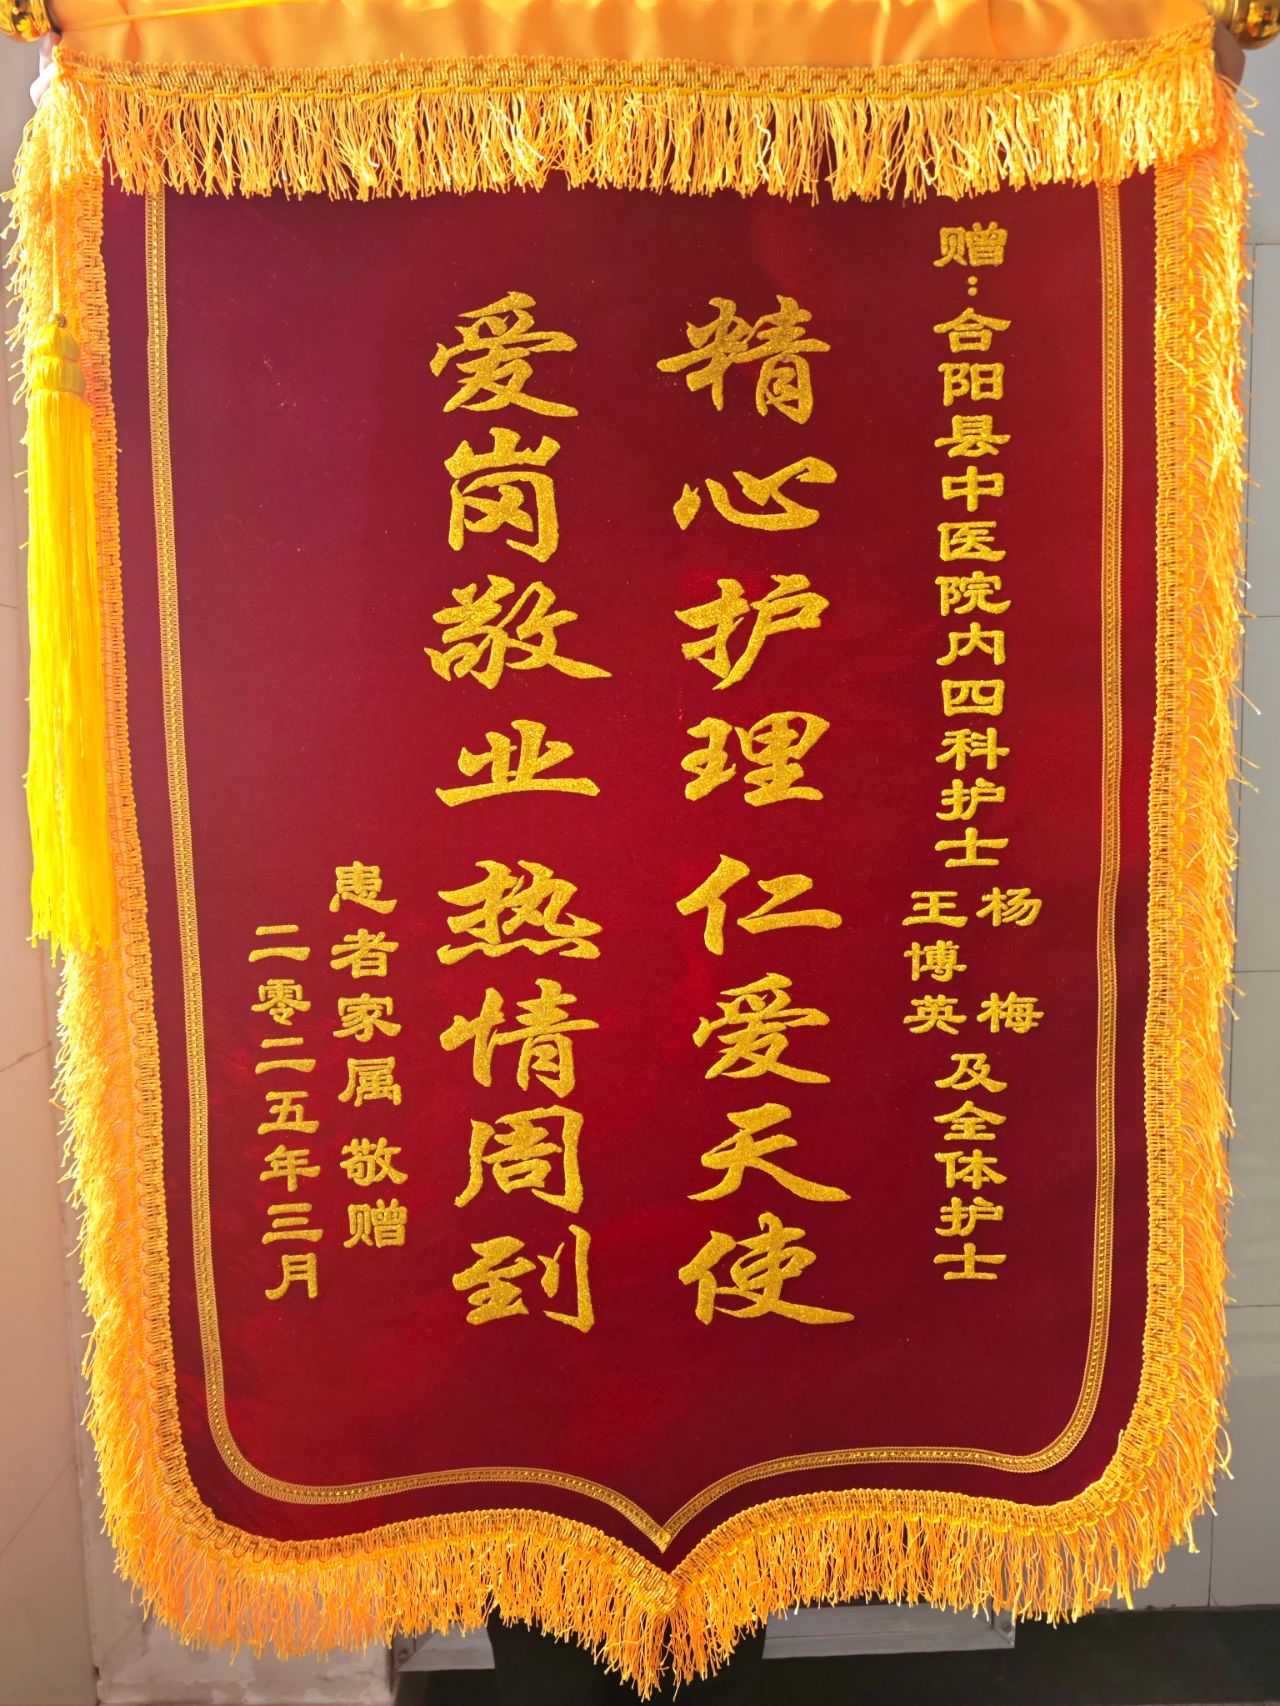 赠：合阳县中医院内四科护士
杨梅
王博英
及全体护士
精心护理仁爱天使
爱岗敬业热情周到
患者家属 敬赠
二零二五年三月